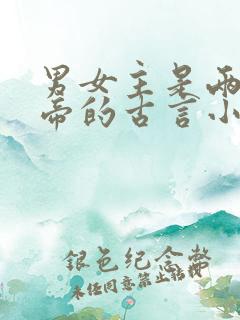 男女主是两
帝的古言小
银色纪念币
未经同意禁止转载